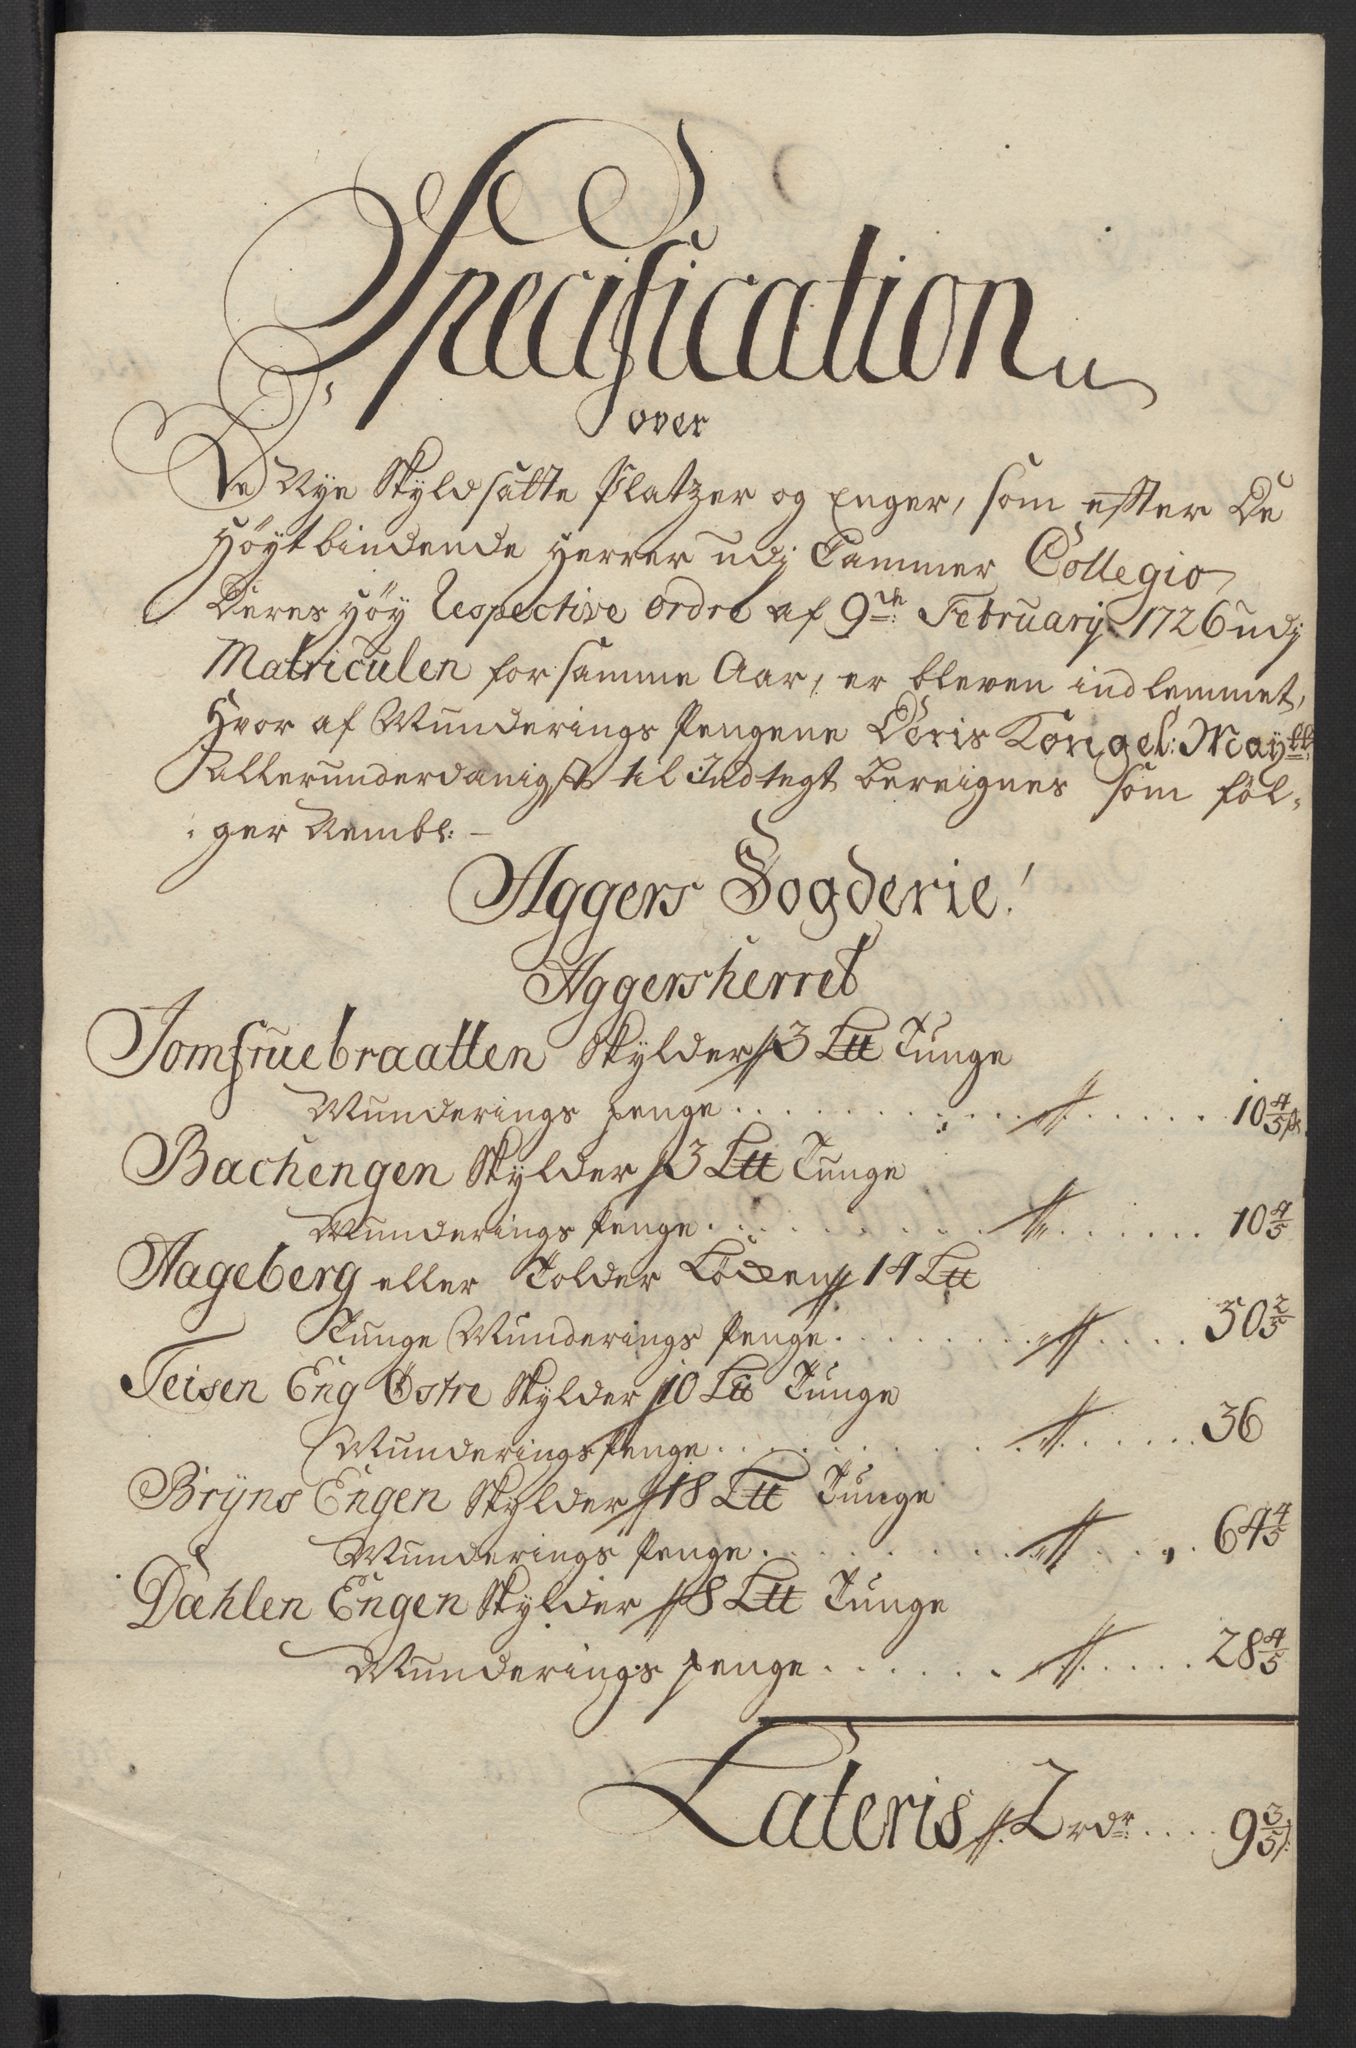 Specification
over
De Nye Skyldsatte Platzer og Enger, som effter De
Höÿtbindende Herrer udj Cammer Collegio
Deres Höÿ Respective ordre af 9de Februarij 1726 udj
Matriculen for samme Aar, er bleven indlemmet,
Hvor af Munderings Pengene Deris Kongel: Maÿtt:
Allerunderdanigst til Indtegt bereignes som föl-
ger Nembl: -
Aggers Fogderie!
Aggersherret
Jomfruebraatten Skylder 3 L℔ Tunge
Munderings penge . . . . 10 4/5 s
Bachengen Skÿlder 3 L℔ Tunge
Munderings Penge . . . . 10 4/5
Aageberg eller Tolder Löcken 14 L℔
Tunge Munderings Penge . . . . 50 2/5
Teisen Eng Östre Skÿlder 10 L℔ Tunge
Munderings Penge . . . . 36
Brÿns Engen Skÿlder 18 L℔ Tunge
Munderings Penge . . . . 64 4/5
Dæhlen Engen Skÿlder 8 L℔ Tunge
Munderings penge . . . . 28 4/5
Lateris 2 rdr . . . . 9 3/5 s: